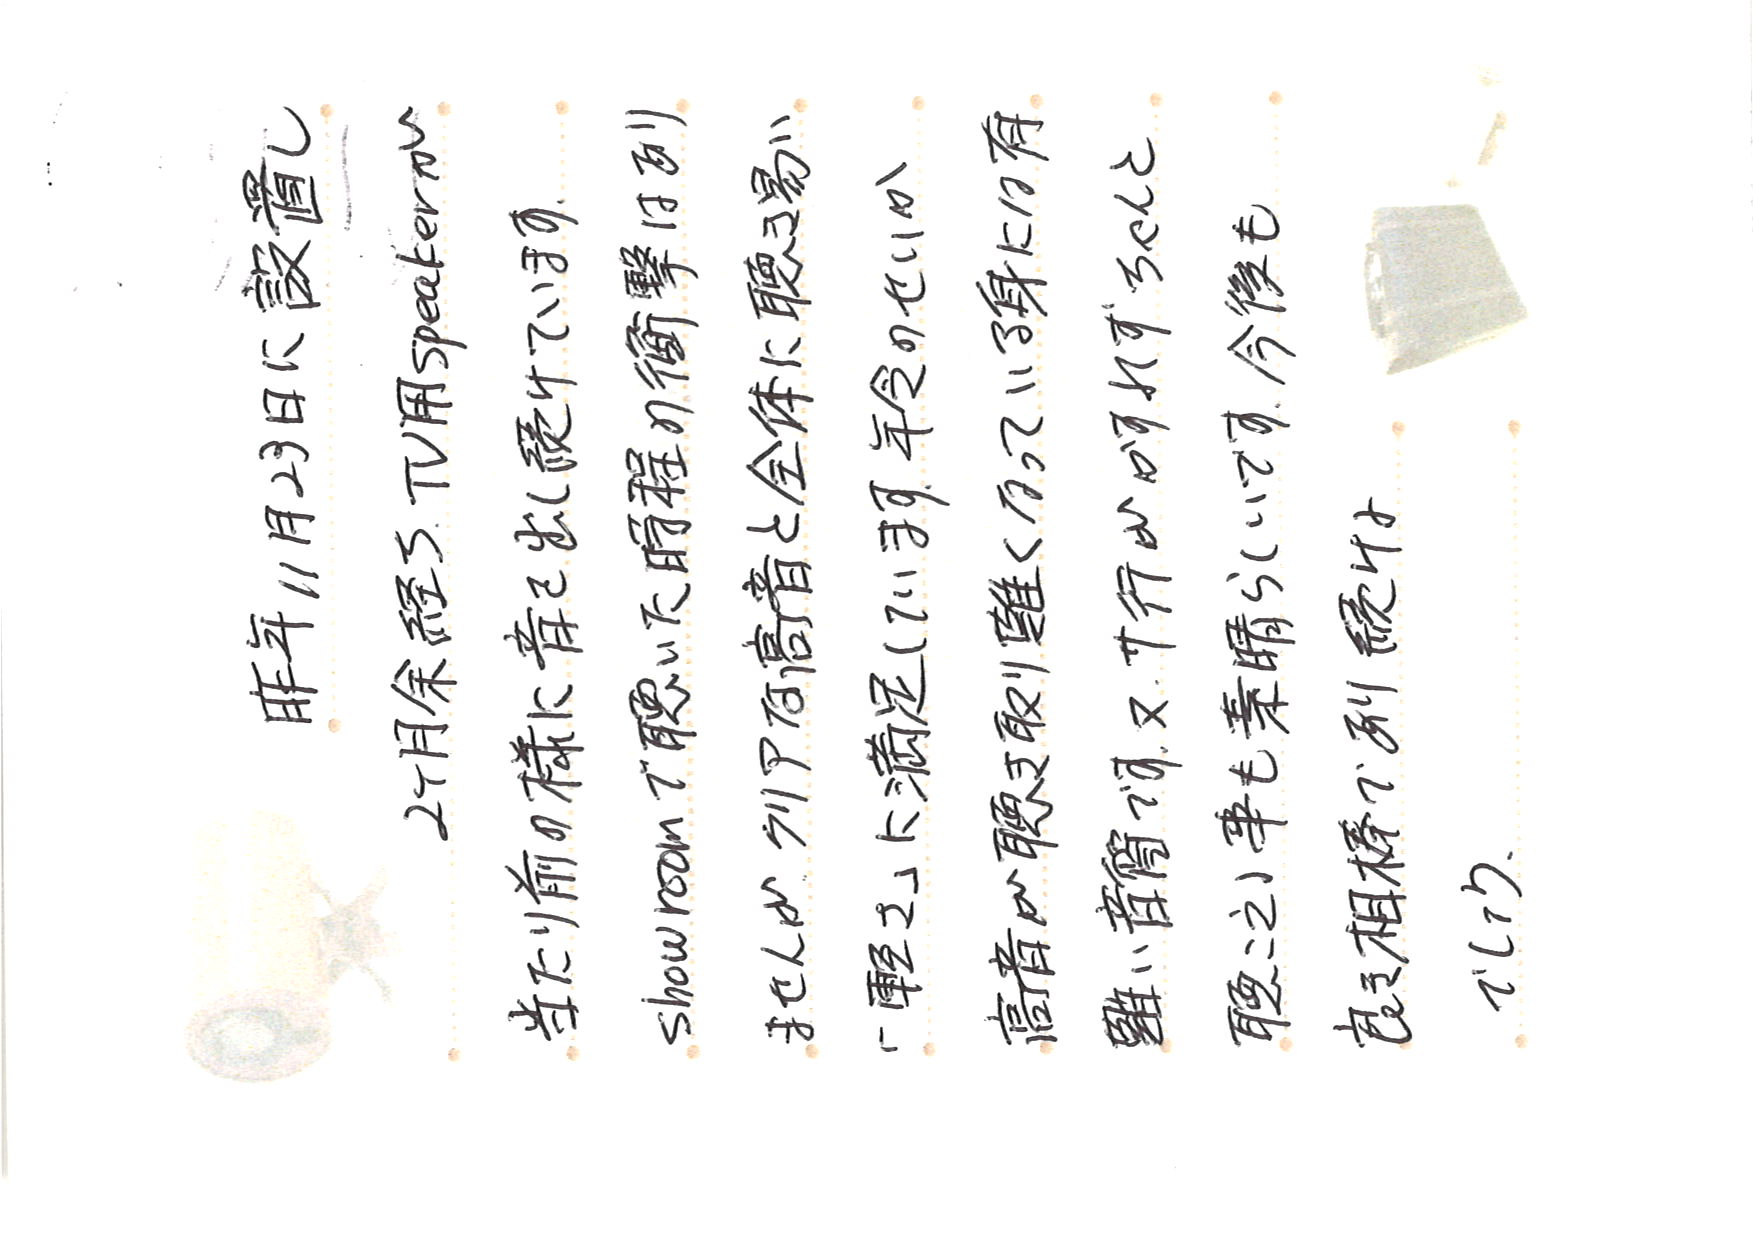 昨年11月23日に設置し
2ケ月余経ち.TV用speakerが
当たり前の様に音を出し続けています.
showroomで聴いた時程の衝撃はあり
ませんが クリアな高音と全体に聴き易い
「軽さ」に満足しています.年令のせいか
高音が聴き取り難くなっている身には有
難い音質です.又.サ行がかすれずちゃんと
聴こえる事も素晴らしいです.今後も
良き相棒であり続けま
でしょう.